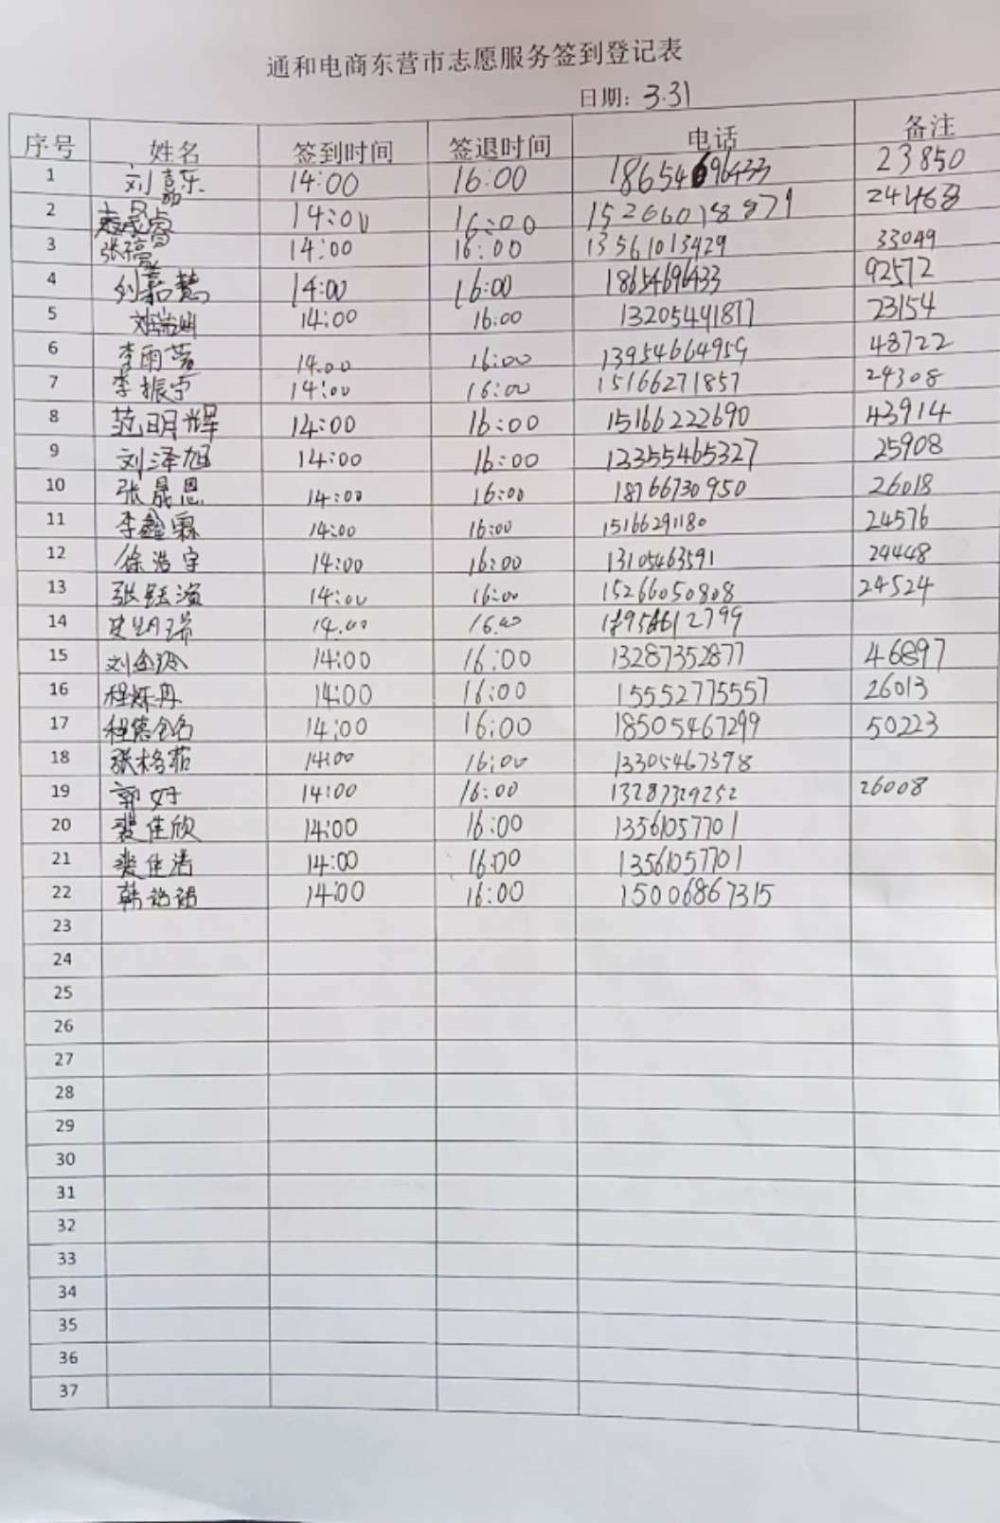 通和电商东营市志愿服务签到登记表
日期：3.31
序号 姓名 签到时间 签退时间 电话 备注
1 刘嘉乐 14:00 16:00 18654696433 23850
2 14:00 16:00 15266018871 24468
3 14:00 16:00 13561013429 33049
4 刘嘉慧 14:00 16:00 18654696433 92572
5 14:00 16:00 13205441877 23154
6 李雨若 14:00 16:00 13954664959 48722
7 李振宇 14:00 16:00 15166271857 24308
8 范明辉 14:00 16:00 15166222690 43914
9 刘泽旭 14:00 16:00 13355465327 25908
10 张晟恩 14:00 16:00 18766730950 26018
11 李鑫霖 14:00 16:00 15166291180 24576
12 徐浩宇 14:00 16:00 13105463591 24448
13 张钰滨 14:00 16:00 15266050808 24524
14 14.00 16.00
15 14:00 16:00 13287352877 46897
16 程烁冉 14:00 16:00 15552775557 26013
17 14:00 16:00 18505467299 50223
18 张格菲 14:00 16:00 13305467398
19 郭好 14:00 16:00 13287329252 26008
20 裴佳欣 14:00 16:00 13561057701
21 裴佳浩 14:00 16:00 13561057701
22 14:00 16:00 15006867315
23
24
25
26
27
28
29
30
31
32
33
34
35
36
37